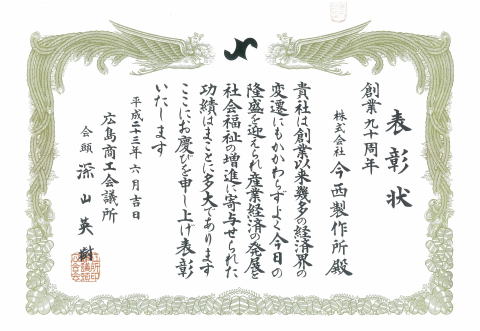 表彰状
創業九十周年
株式会社 今西製作所殿
貴社は創業以来幾多の経済界の
変遷にもかかわらずよく今日の
隆盛を迎えられ産業経済の発展と
社会福祉の増進に寄与せられた
功績はまことに多大であります
ここにお慶びを申し上げ表彰
いたします
平成二十三年六月吉日
広島商工会議所
会頭 深山英樹